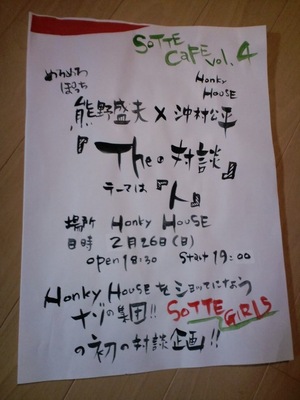 SOTTE
CAFE vol.4
めかしわ
ぽっち
Honky
HOUSE
熊野盛夫×沖村公平
『Theの対談』
テーマは『人』
場所 Honky HoUSE
日時 2月26日(日)
open18:30 Start 19:00
Honky HouSEをジョッてにぎなう
ナゾの集団!! SOTTE
GiRLS
の初の対談企画!!